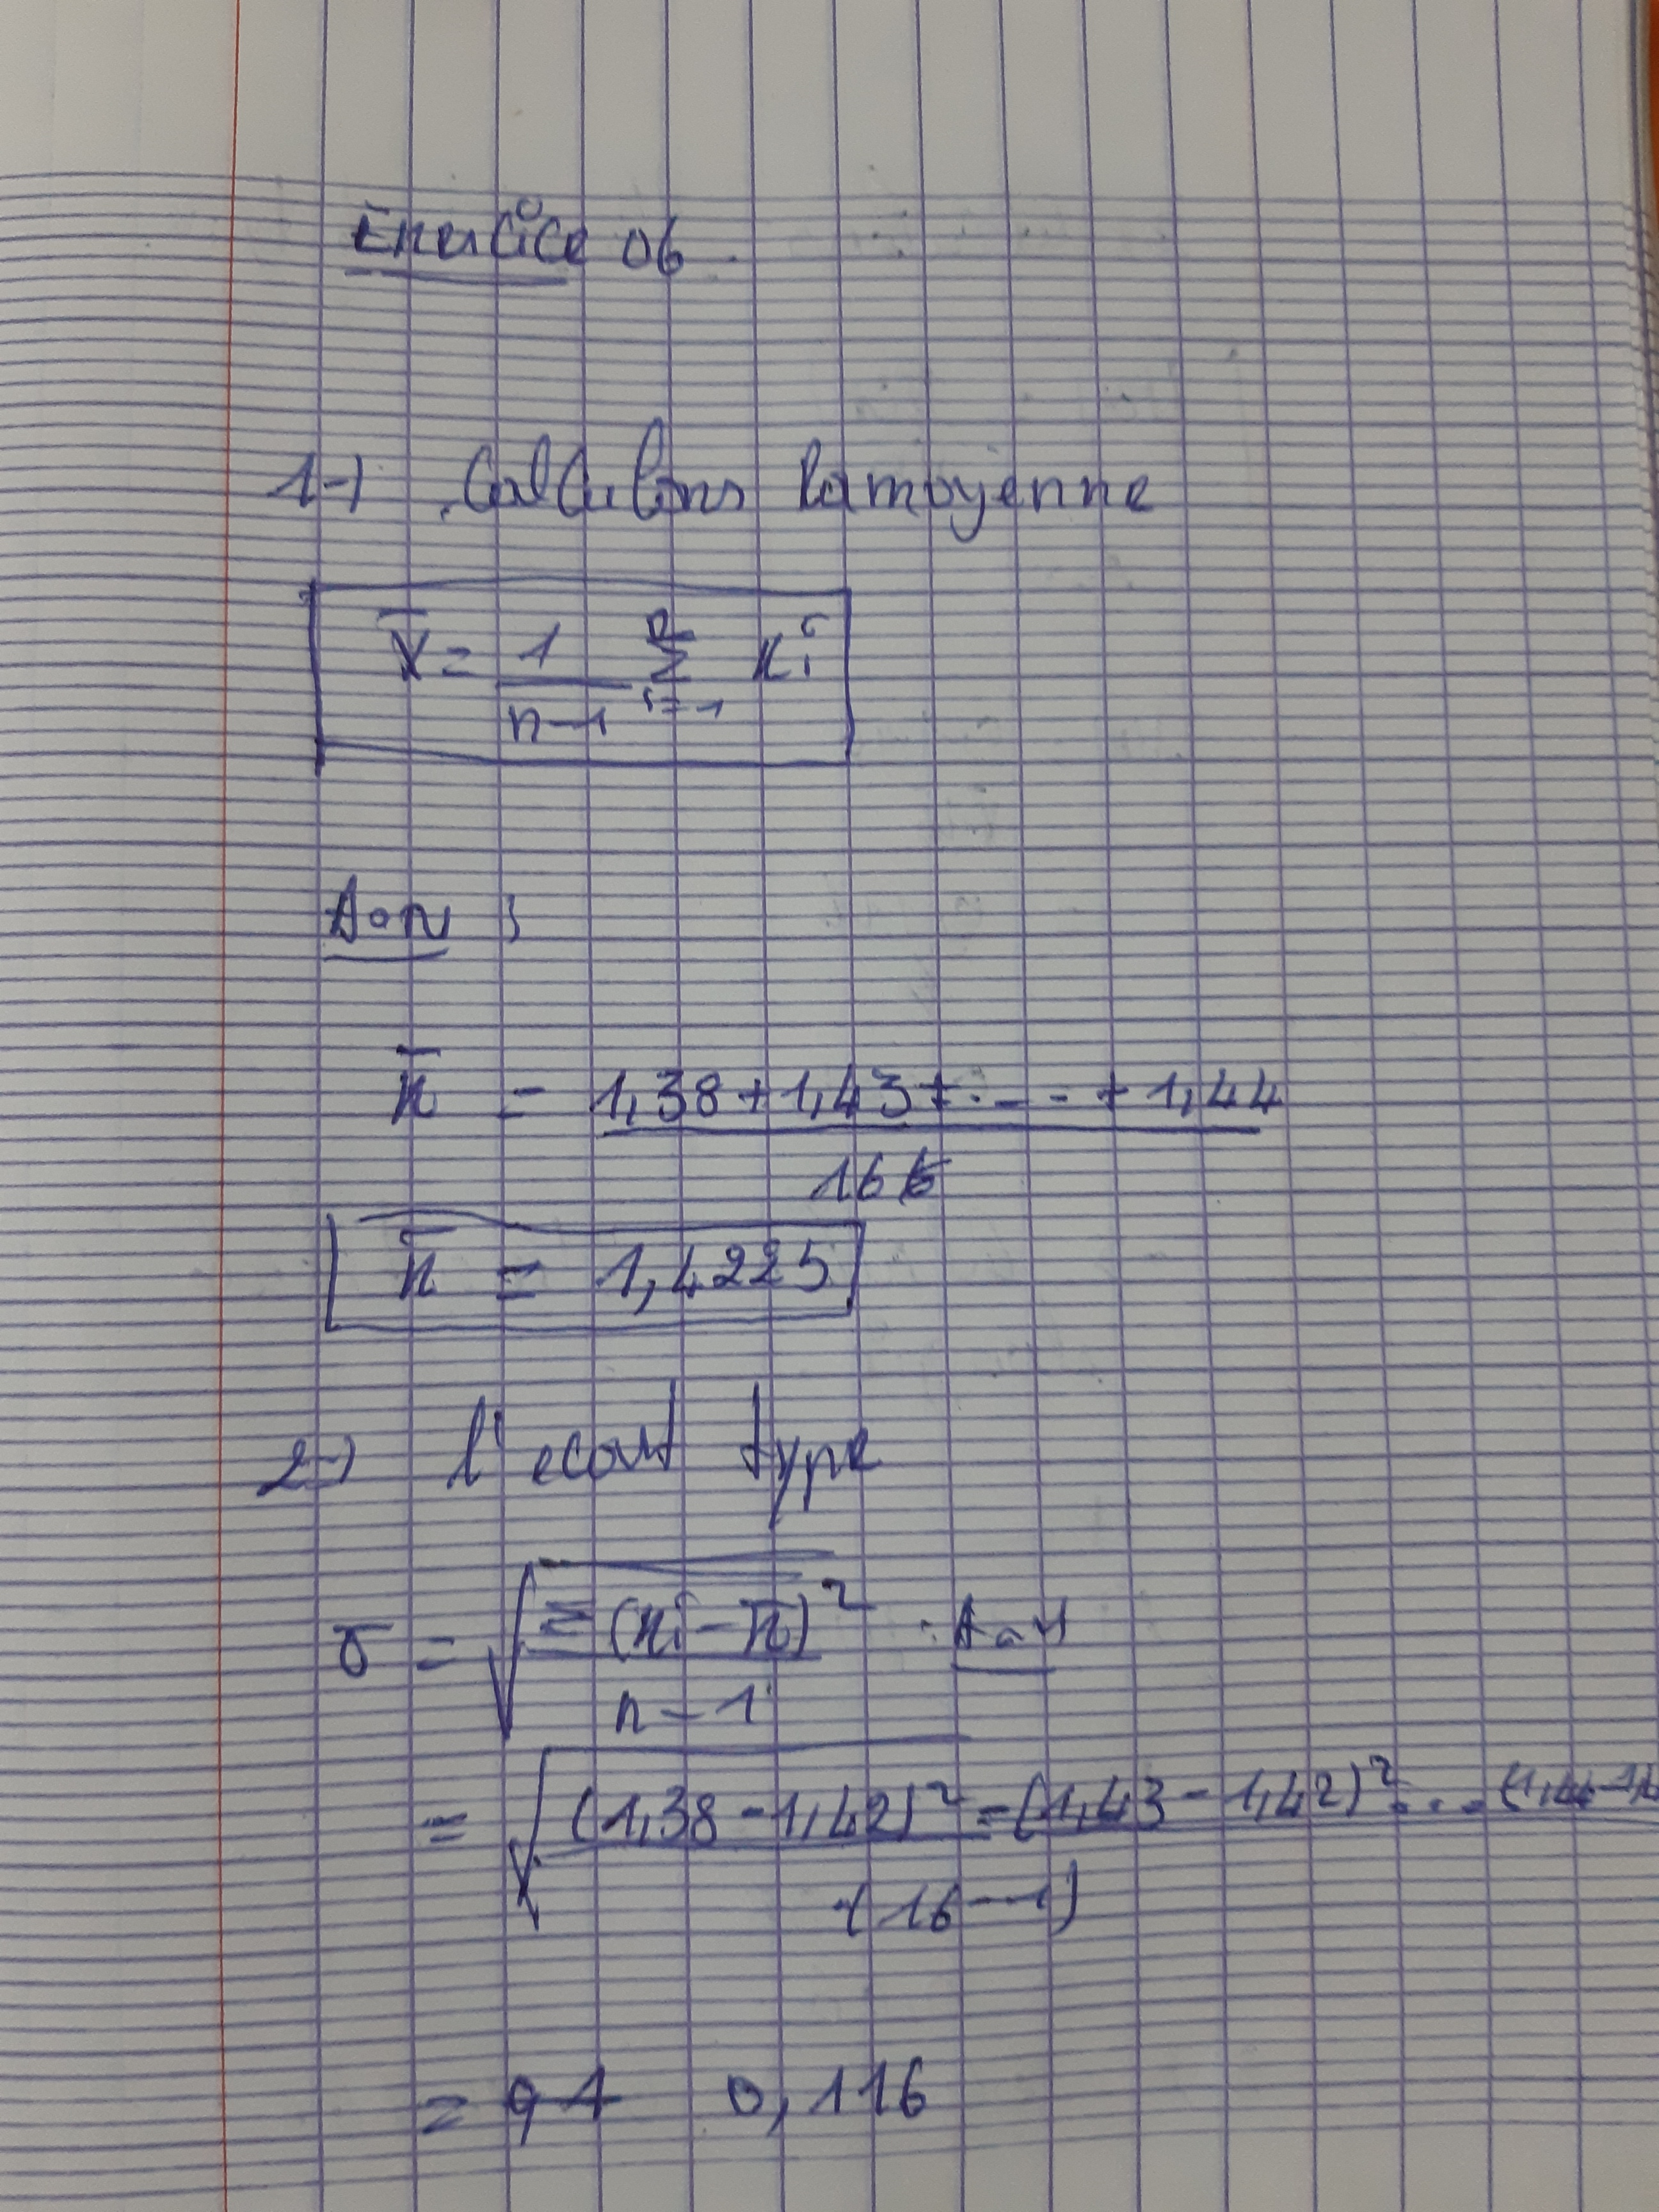 Exercice 06
1-) Calculons la moyenne
x̄ = 1/(n-1) Σ(i=1, n) xi
A.N :
x̄ = (1,38 + 1,43 + . - - + 1,44)/16
x̄ = 1,4225
2-) l'ecart type
σ = √(Σ(xi - x̄)²/(n - 1)) A.N
= √((1,38 - 1,42)² - (1,43 - 1,42)² . . -
(16 - 1)
= 0,116